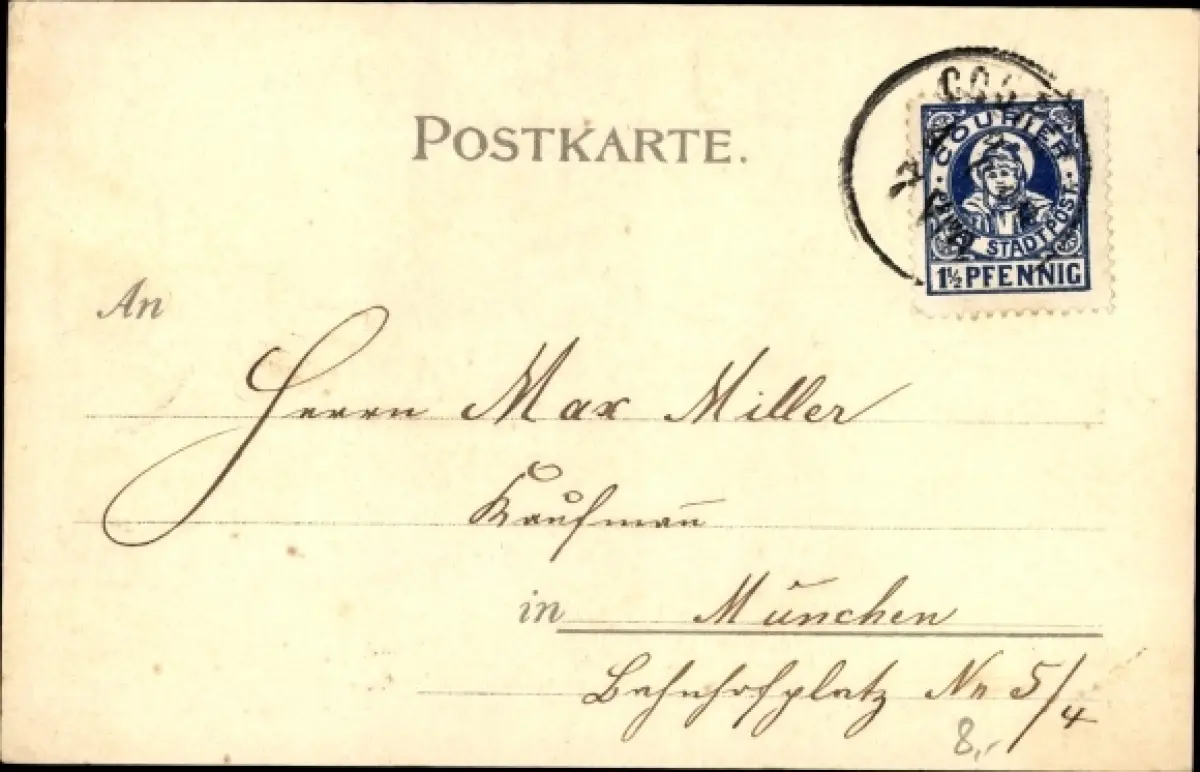 POSTKARTE.
COURIER
STADTPOST.
1½ PFENNIG
An
Herrn Max Miller
Kaufmañ
in München
Bahnhofplatz Nr 5/4
8,-